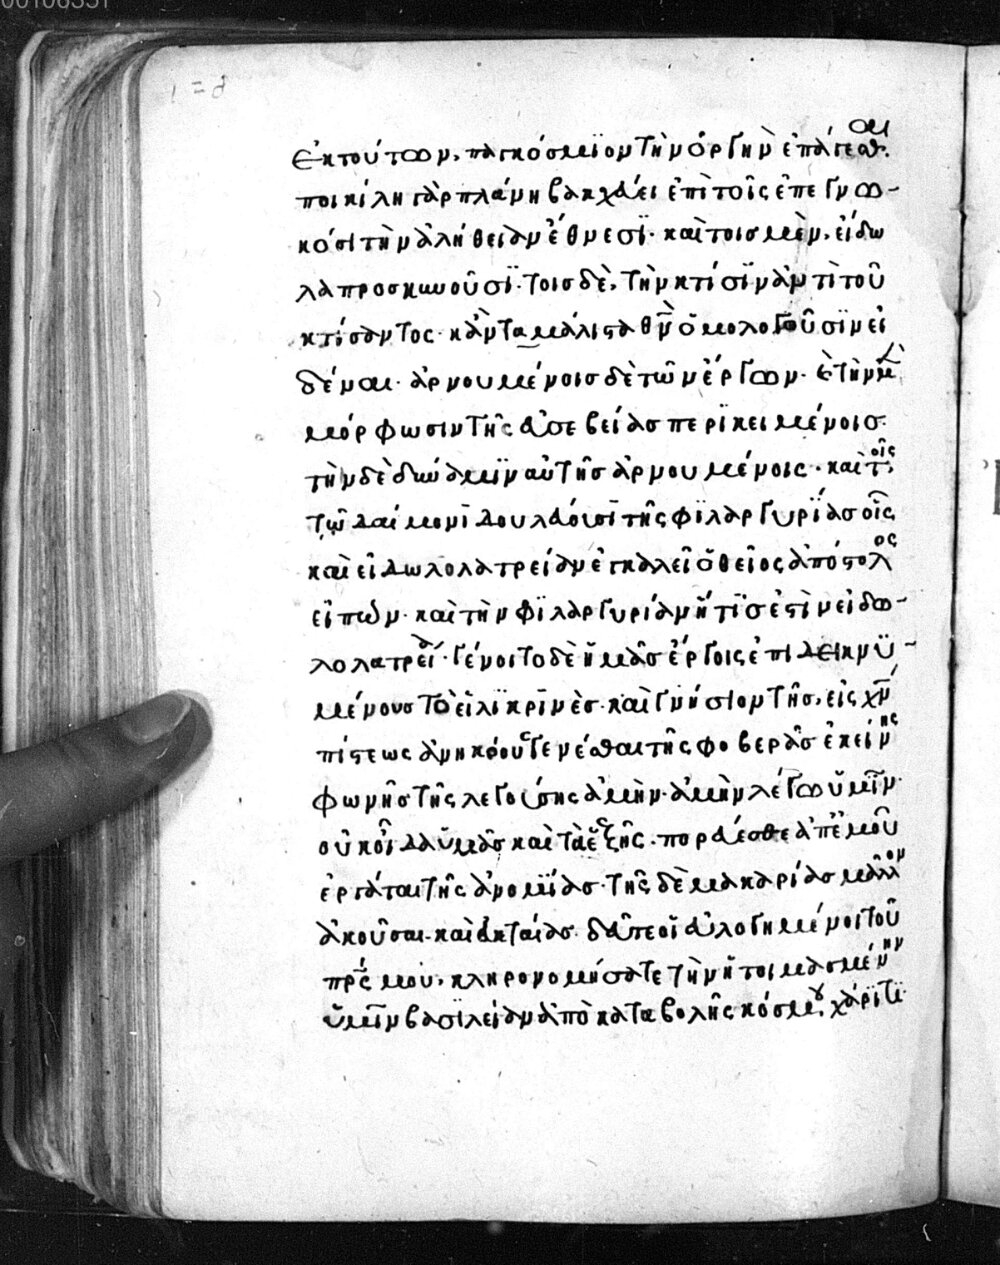 00106351
ἐκ τούτων, παγκόσμϊον τὴν ὀργὴν ἐπάγεσθαι.
ποικίλη γὰρ πλάνη βακχεύει ἐπὶ τοῖς ἐπεγνω-
κόσι τὴν ἀλήθειαν ἔθνεσϊ· καὶ τοισ μὲν, εἴδω
λα προσκυνοῦσϊ· τοισ δὲ, τὴν κτίσϊν ἀντὶ τοῦ
κτίσαντος· κἀν τὰ μάλιστα θν ὁμολογοῦσϊν εἰ
δέναι· ἀρνουμένοισ δὲ τῶν ἔργων· ἐ τὴν μὲν
μόρφωσιν τῆς ἀσεβείασ περϊκειμένοισ·
τὴν δὲ δύναμϊν αὐτῆσ ἀρνουμένοις· καὶ τοῖς
τῷ δαίμονϊ δουλεύουσϊ τῆς φϊλαργυρϊασ οἷς
καὶ εἰδωλολατρείαν ἐγκαλεῖ ὁ θεῖος ἀπόστολος
εἰπών· καὶ τὴν φϊλαργυρίαν ἥτϊσ ἐστὶν εἰδω-
λολατρεία· γένοιτο δὲ ἡμᾶσ ἔργοις ἐπιδεικνϋ-
μένουσ τὸ εἰλϊκρϊνὲσ· καὶ γνήσιον τῆσ, εἰς χν
πίστεως ἀνηκόους γενέσθαι τῆς φοβερᾶσ ἐκείνης
φωνῆσ τῆς λεγούσης ἀμὴν· ἀμὴν λέγω ὑμῖν·
οὐκ οἶδα ὑμᾶσ καὶ τὰ ἑξῆς· πορεύεσθε ἀπ' ἐμοῦ
ἐργάται τῆς ἀνομϊασ· τῆς δὲ μακαρίασ μᾶλλον
ἀκοῦσαι καὶ εὐκταίασ· δεῦτε οἱ εὐλογημένοι τοῦ
πρς μου, κληρονομήσατε τὴν ἡτοιμασμένην
ὑμῖν βασϊλείαν ἀπὸ καταβολῆς κόσμου, χάριτϊ